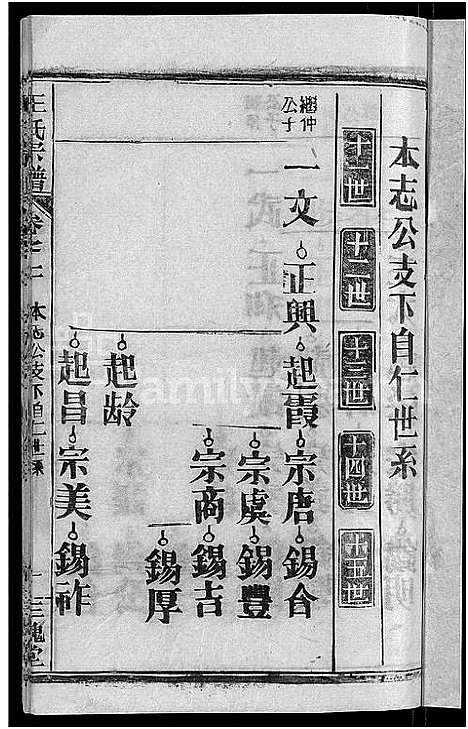 本志公支下自仁世系
十一世
十二世
十三世
十四世
十五世
繼仲公子
一文
正興
起霞
宗唐
錫合
宗虞
錫豐
宗商
錫吉
錫厚
起齡
起昌
宗美
錫祚
王氏宗譜
卷之
本志公支下自仁世系
三槐堂